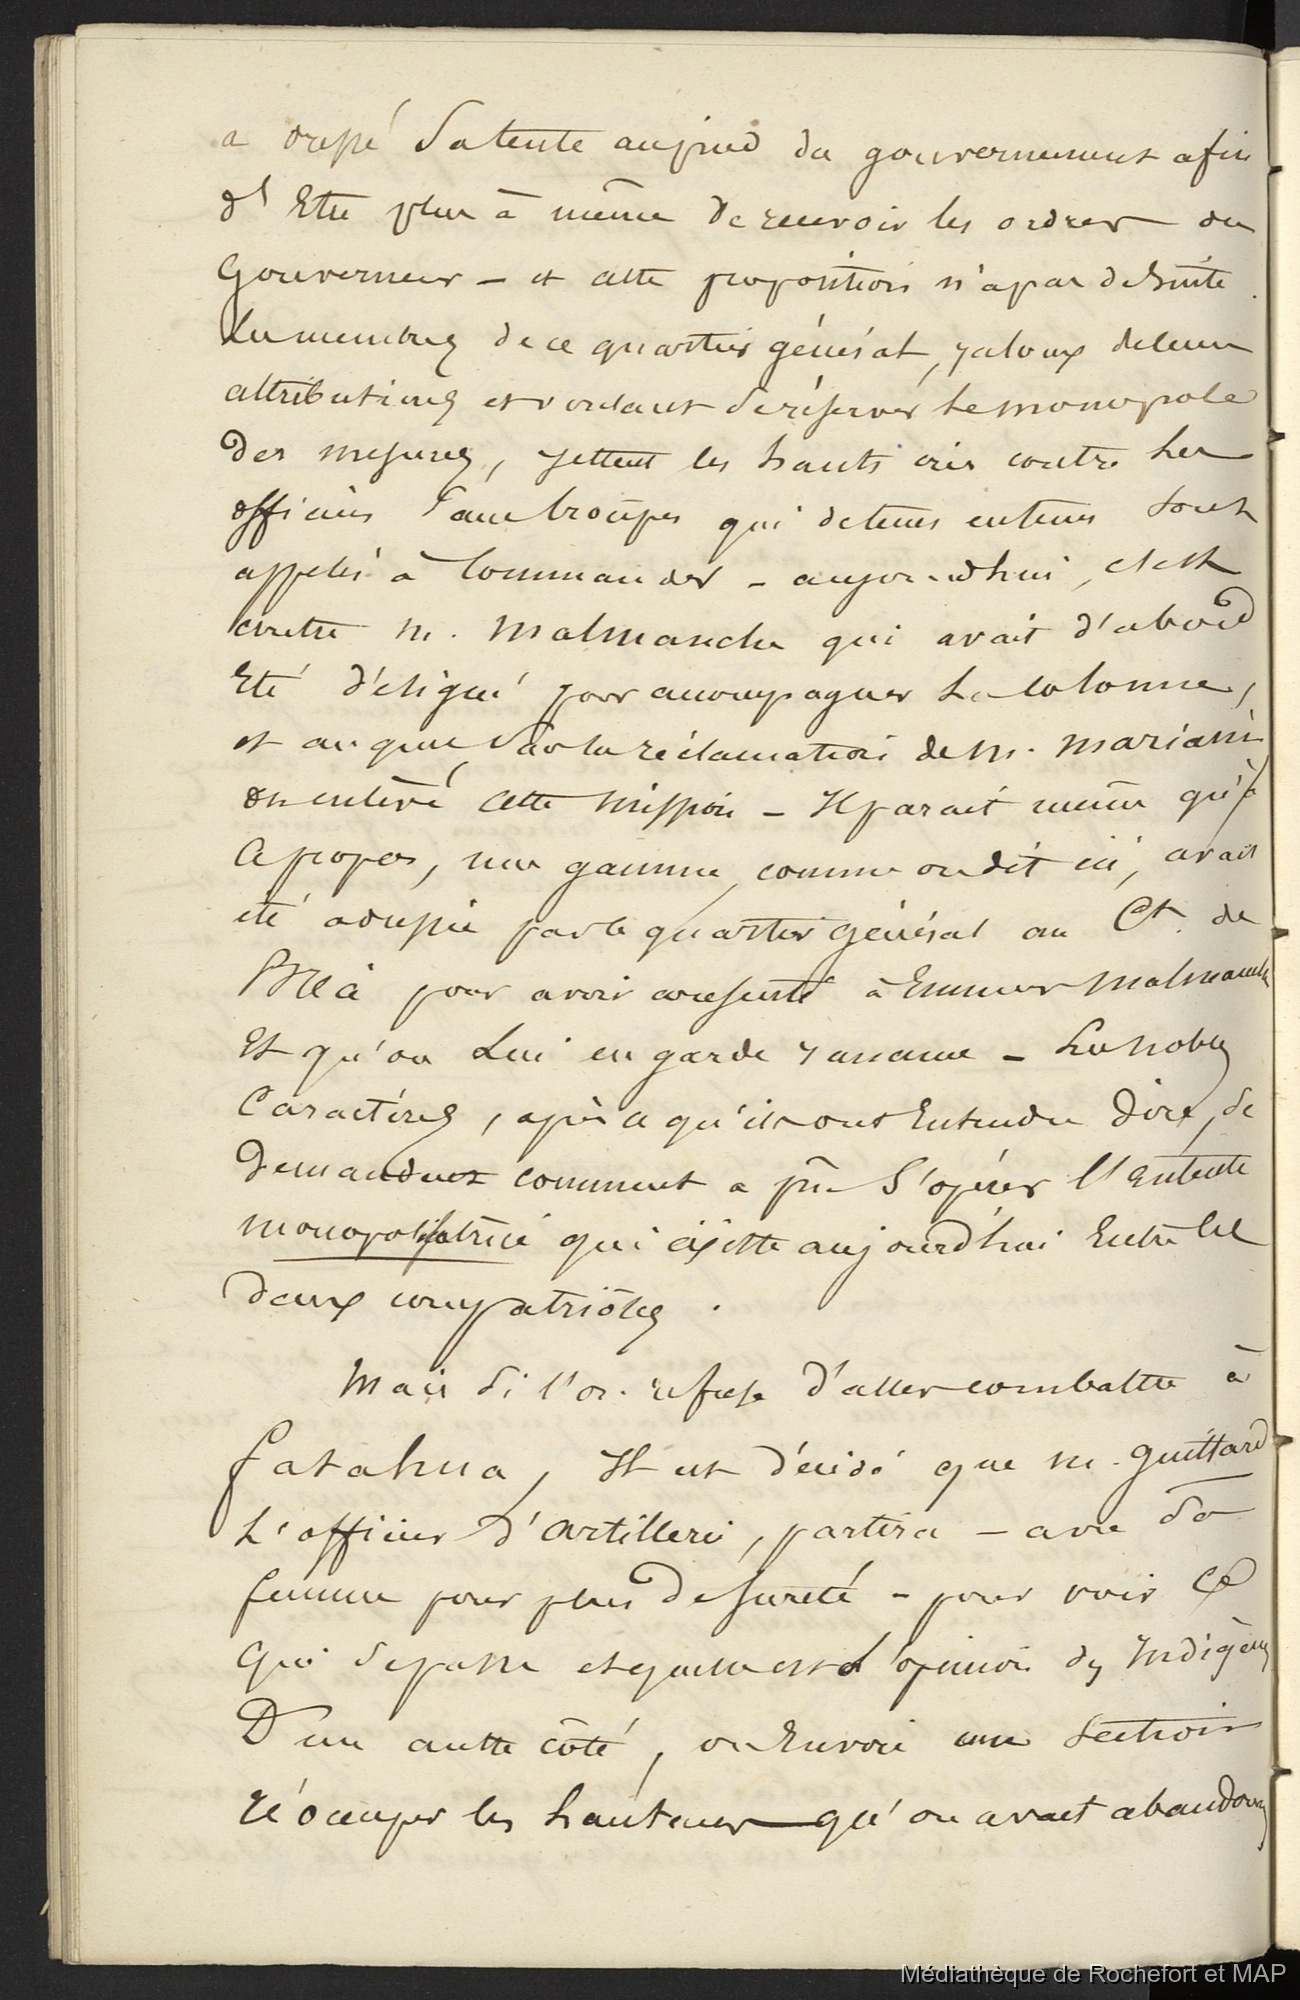 a dressé sa tente aupied du gouvernement afin
d'Etre plus à même de recevoir les ordres du
Gouverneur – et cette proposition n'a pas de suite.
Les membres de ce quartier général, jaloux de leurs
attributions et voulant se réserver le monopole
des mesures, jettent les hauts cris contre les
officiers sans troupes qui de tems en tems sont
appelés à Commander – aujourd'hui, c'est
contre m. Malmanche qui avait d'abord
Eté désigné pour accompagner la colonne,
et auquel, sur la réclamation de M. Mariani
on enlève cette mission – Il parait même qu'à
ce propos, une gamme, comme on dit ici, avait
été adressée par le quartier général au Ct. de
Bréa pour avoir consenti à Emmener Malmanche
Et qu'on lui en garde rancune – Les nobles
Caractères, après ce qu'ils ont Entendu dire, se
demandent comment a pu S'opérer l'Entente
monopolisatrice qui éxiste aujourd'hui Entre les
deux compatriôtes.
Mais si l'on refuse d'aller combattre à
fatahua, Il est décidé que m. Guittard
L'officier d'Artillerie, partira – avec sa
femme pour plus de sureté – pour voir ce
qui se passe et quelle est l'opinion des Indigènes
D'un autre côté, on Envoie une section
réoccuper les hauteurs qu'on avait abandonnées
Médiathèque de Rochefort et MAP